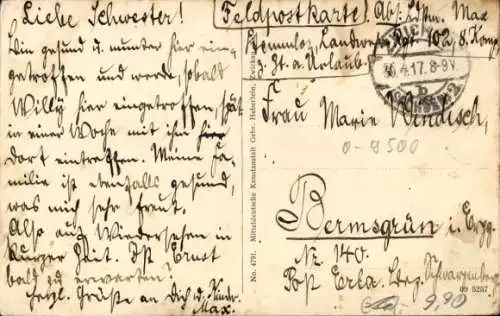 Liebe Schwester!
Bin gesund u. munter hier ein-
getroffen und werde, sobald
Willy hier eingetroffen, spät
in einer Woche mit ihm hier
dort eintreffen. Meine Fa-
milie ist ebenfalls gesund,
was mich sehr freut.
Also auf Wiedersehen in
kurzer Zeit. Ist Ernst
bald zu erwarten?
Herzl. Grüße an Dich u. Kinder
Max.
Feldpostkarte! Abs: Max
Landw. 102, 8. Komp.
Zt. a. Urlaub.
4.17. 8-9V.
b
Frau Marie Windisch,
0-8500
Bermsgrün i. Erzg.
Nr. 140.
Post Erla, Bez. Schwarzenberg
09 5257
9,90
No. 4791. Mitteldeutsche Kunstanstalt Gebr. Heinrich, Zwickau